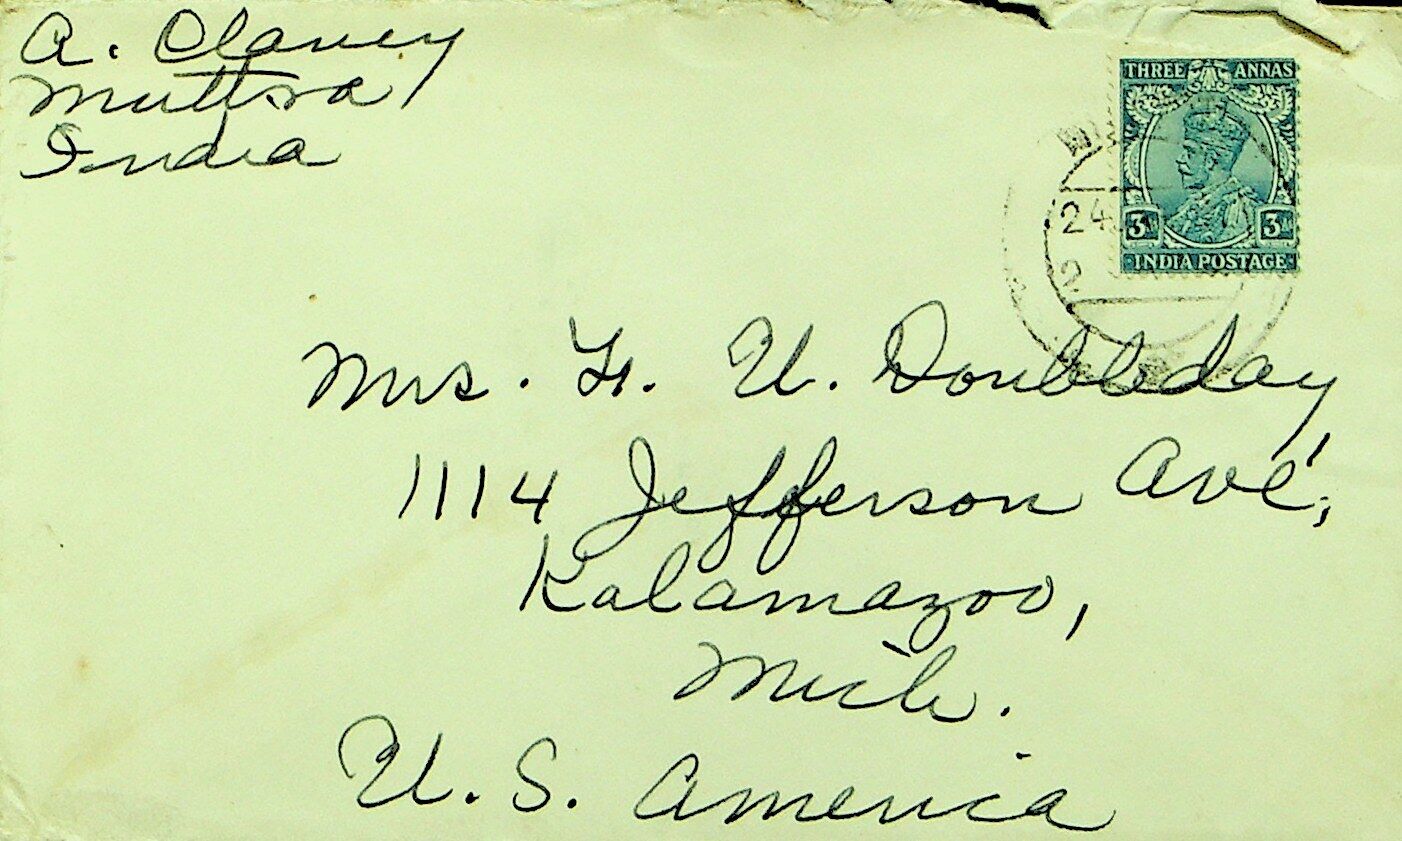 A. Clancy
Muttra
India
THREE ANNAS
24
2
3A 3A
INDIA POSTAGE
Mrs. F. U. Doubleday,
1114 Jefferson Ave,
Kalamazoo,
Mich.
U. S. America